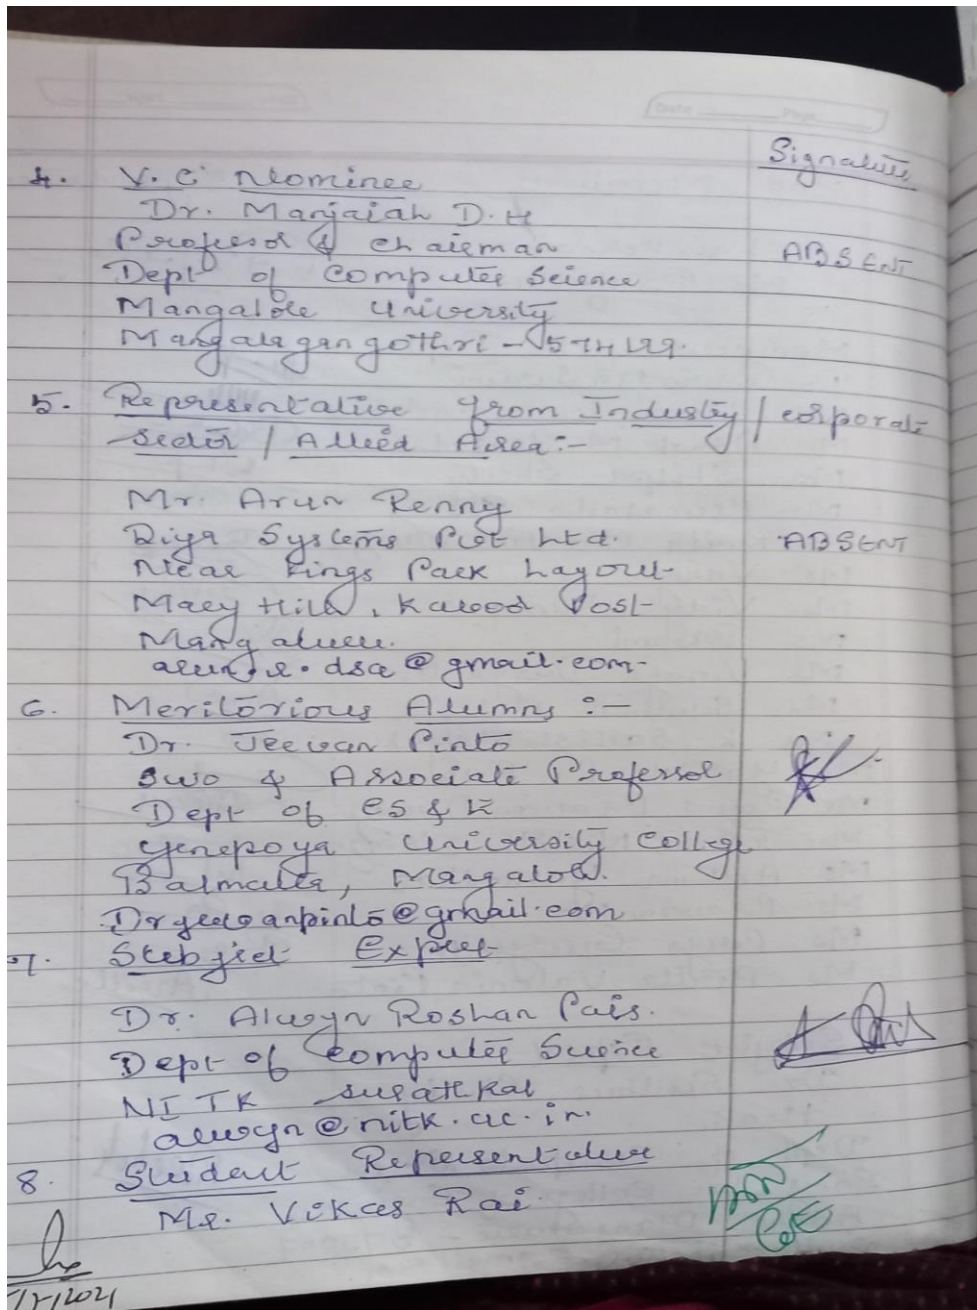 Date Page
Signature
4. V. C Nominee
Dr. Manjaiah D.H
Professor & Chairman
ABSENT
Dept of Computer Science
Mangalore University
Mangalagangothri - 574199.
5. Representative from Industry / corporate
sector / Allied Area :-
Mr. Arun Renny
Diya Systems Pvt Ltd. ABSENT
Near Kings Park Layout
Mary Hill, Kavoor Post
Mangaluru.
@gmail.com
6. Meritorious Alumny :-
Dr. Jeevan Pinto
SWO & Associate Professor
Dept of CS &
Yenepoya University College
Balmatta, Mangalore.
Drjeevanpinto@gmail.com
7. Subject Expert
Dr. Alwyn Roshan Pais.
Dept of Computer Science
NITK Surathkal
alwyn@nitk.ac.in.
8. Student Representative
Mr. Vikas Rai